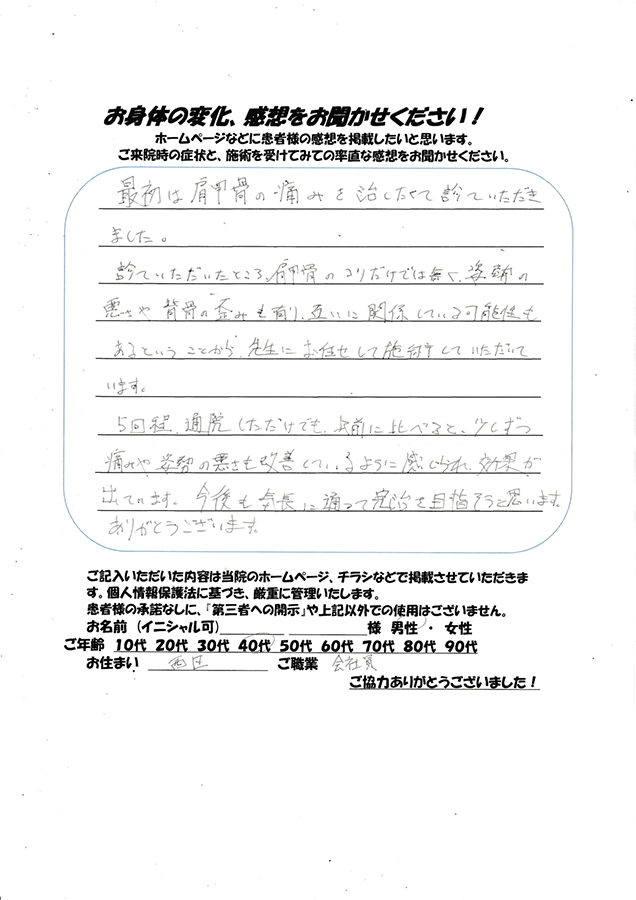 お身体の変化、感想をお聞かせください！
ホームページなどに患者様の感想を掲載したいと思います。
ご来院時の症状と、施術を受けてみての率直な感想をお聞かせください。
最初は肩甲骨の痛みを治したくて診ていただき
ました。
診ていただいたところ、肩甲骨のコリだけでは無く、姿勢の
悪さや背骨の歪みも有り、互いに関係している可能性も
あるということから、先生にお任せして施術していただいて
います。
5回程、通院しただけでも、以前に比べると、少しずつ
痛みや姿勢の悪さも改善しているように感じられ、効果が
出ています。今後も気長に通って完治を目指そうと思います。
ありがとうございます。
ご記入いただいた内容は当院のホームページ、チラシなどで掲載させていただきま
す。個人情報保護法に基づき、厳重に管理いたします。
患者様の承諾なしに、『第三者への開示』や上記以外での使用はございません。
お名前（イニシャル可） 様 男性・女性
ご年齢 10代 20代 30代 40代 50代 60代 70代 80代 90代
お住まい 西区 ご職業 会社員
ご協力ありがとうございました！